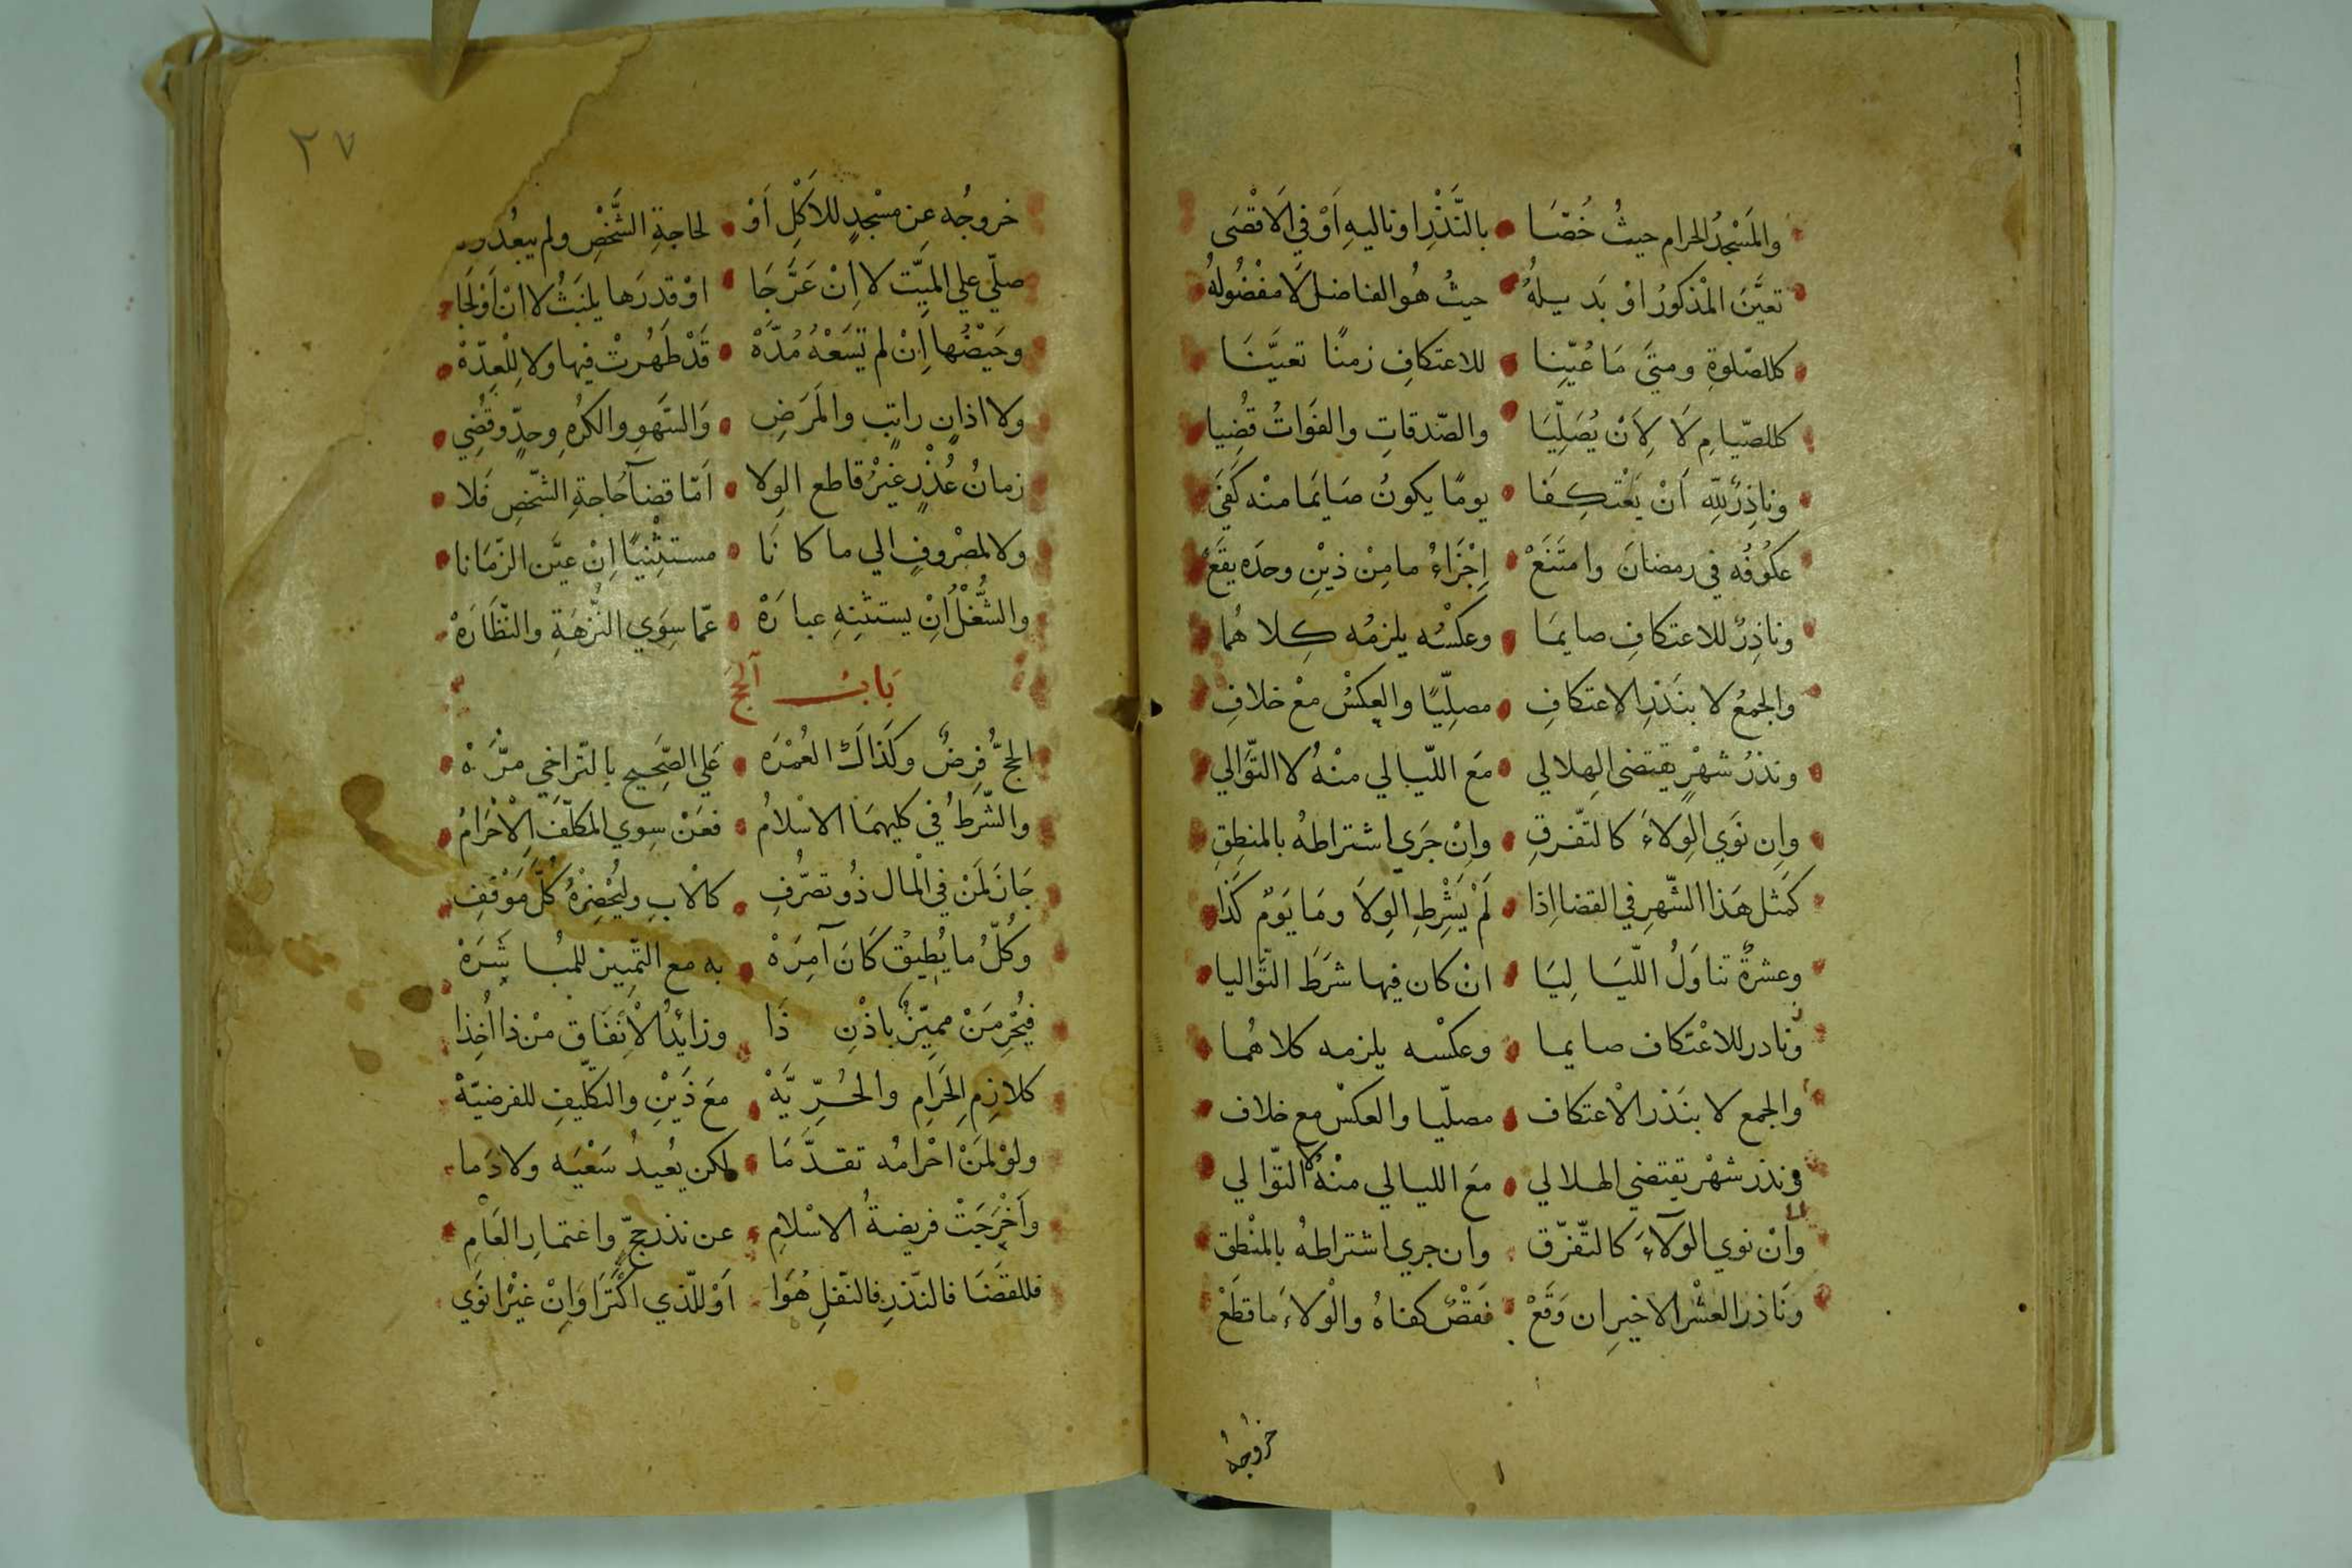 والمَسْجِدُ الحرام حيثُ خُصّصَا • بالنَّذْرِ او تاليهِ اَوْ في الاَقْصَى
تعيَّنَ المْذكورُ اوْ بَديلهُ • حيثُ هُو الفاضل لَا مَفْضُولهُ
كللصّلوةِ ومتيَ مَا عُيّنِا • للاعتكافِ زمنًا تعيَّنَا
كللصّيامِ لَا لِاَنْ يُصَلِّيَا • والصّدقاتِ والفَوَاتُ قُضِيا
وناذِرٌ للِّه اَنْ يَعْتكِفَا • يومًا يكونُ صَايمَا منْه كَفَيَ
عكُوفُه في رمضانَ وامتَنَعْ • اِجْزَاءُ ما مِنْ ذيْنِ وحدَه يقَعْ
وناذِرٌ للاعتكافِ صايمَا • وعكْسُه يلزمُه كِلاهُما
والجمعُ لا بنَذْرِ الاعتكافِ • مصلِّيًا والعِكسْ معْ خلافِ
ونذرُ شهْرٍ يقتضى الهِلالي • مَع اللّيالي منْهُ لا التّوَالي
وان نَوَي الوِلاءَ كالتّفرقِ • وانْ جَرَي اشتراطهُ بالمنطِقِ
كَمثل هَذا الشّهرِ في القضا اِذا • لَمْ يَشْرِطِ الوِلَا ومَا يَومٌ كَذا
وعشرةٌ تناوَلُ اللّيَا لِيَا • انْ كان فيها شرَطَ التّوَاليا
ونادر للاعْتكاف صايما • وعكْسه يلزمه كلاهُما
والجمع لا بنَذر الاْعتكاف • مصلّيا والعكسْ مع خلاف
ونذر شهْر يقتضي الهلالي • مَع الليالي منْهُ لا التّوالي
وانْ نوي الوَلآءَ كالتّفرّق • وان جري اشتراطهُ بالمنْطق
وَناذر العشْر الاخيرِ ان وَقَعْ • فَقْصٌ كفاهُ والْولاءَ ما قطَعْ
خروجُهُ
٢٧
خروجُه عِن مسْجدٍ للاَكْلِ اَوْ • لحاجةِ الشَّخْصِ ولم يبعُد
صلّي علي الميّت لا اِنْ عَرَّجَا • اوْ قدِرَها يلبَثُ لا انْ اَوْلَجَا
وحَيْضُها اِنْ لم تَسَعْهُ مُدّهْ • قَدْ طَهُرتْ فيها ولا لِلْعِدّهْ
ولا اذانٍ راتبٍ والمَرَضِ • وَالسّهوِ والكرُهِ وحدٍّ وقُضِي
زمانُ عُذْرٍ غيْرُ قاطع الوِلا • اَمّا قضآ حَاجةِ الشّخصِ فَلا
ولا لمصْروفٍ الي ما كانَا • مستثْنيًا اِنْ عيَّن الزّمَانا
والشُّغْلُ اَنِ يستثنِهِ عبارَهْ • عمّا سِوَي النُّزهَةِ والنّظَارَهْ
بَابُ آلحَجّ
الحجُّ فرضٌ وكَذاكَ العُمْرَه • عَلي الصّحيحِ بالتّراخِي مَرَّهْ
والشّرطُ في كليهمَا الاسْلامُ • فعَنْ سِوي المكلّفَ الاِحْرامُ
جَازَ لَمنْ في المْال ذُو تصرُّفِ • كالاْبِ وليُحْضِرْهُ كُلَّ مَوْقفِ
وكُلّ ما يُطِيقْ كَانَ آمِرَهْ • به مع التّمييز للمُباشَرَهْ
فيُحْرِمَنْ مميّزٌ باذْنِ ذَا • وزايدُ الاْنفَاق منْ ذا اُخِذا
كلازِمِ الحَرامِ والحُرّيَّهْ • مَعَ ذَيْنِ والتكليْفِ للفرضيّهْ
ولَوْ لمَنْ احْرامُه تقدَّمَا • لكن يُعيدُ سَعْيَه ولا دَما
وأخْرَجَتْ فريضةُ الاسْلامِ • عن نذر حجٍّ واعْتمارِ العَامِ
فللقضَا فالنّذرِ فالنّفلِ هُوَا • اَوْ للّذي اكْتَرَا وَانْ غيْرًا نَوَي